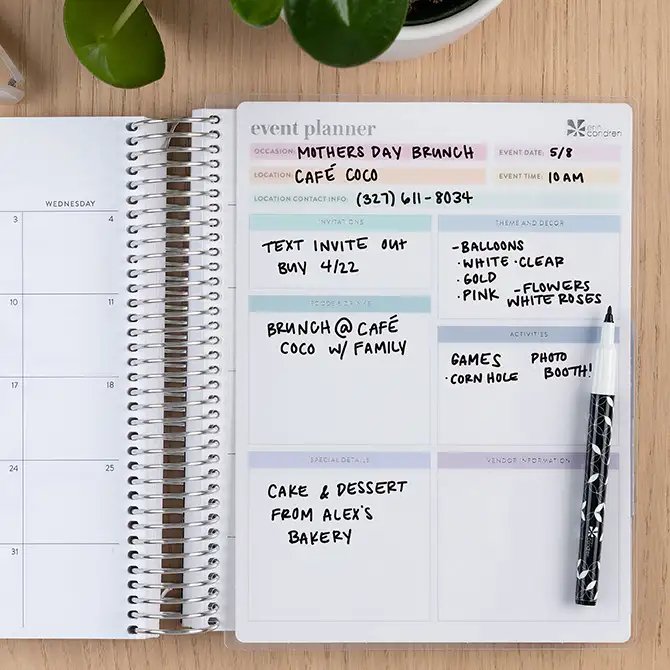 event planner
erin condren
OCCASION: MOTHERS DAY BRUNCH
EVENT DATE: 5/8
LOCATION: CAFÉ COCO
EVENT TIME: 10 AM
LOCATION CONTACT INFO: (327) 611-8034
INVITATIONS
TEXT INVITE OUT
BUY 4/22
THEME AND DECOR
-BALLOONS
·WHITE ·CLEAR
·GOLD
·PINK -FLOWERS
WHITE ROSES
FOODS & DRINKS
BRUNCH @ CAFÉ
COCO W/ FAMILY
ACTIVITIES
GAMES PHOTO
·CORN HOLE BOOTH!
SPECIAL DETAILS
CAKE & DESSERT
FROM ALEX'S
BAKERY
VENDOR INFORMATION
WEDNESDAY
3 4
10 11
17 18
24 25
31